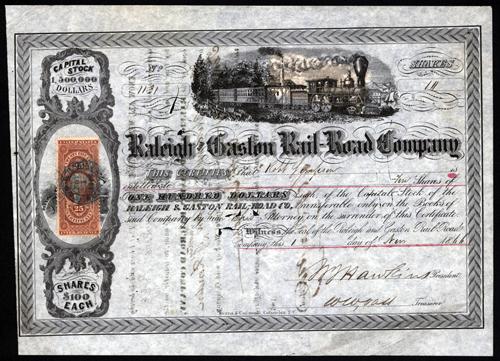 CAPITAL STOCK
1,500,000
DOLLARS
No
1131
SHARES
10
Raleigh and Gaston Rail-Road Company
THIS CERTIFIES
That
is
entitled to
Ten Shares of
ONE HUNDRED DOLLARS
Each of the Capital Stock of the
RALEIGH & GASTON RAIL-ROAD CO.
Transferable only on the Books of
said Company by
Attorney on the surrender of this Certificate
Witness, the Seal of the Raleigh and Gaston Rail-Road
Company this 1 day of Nov 1866
W J Hawkins President
Treasurer
25
SHARES
$100
EACH